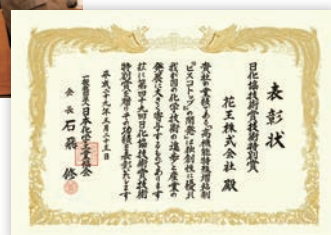 表彰状
日化協技術賞技術特別賞
花王株式会社 殿
貴社の業績である高機能特殊増粘剤
「ビスコトップ」の開発は独創性に優れ
我が国の化学技術の進歩と産業の
発展に大きく寄与するものであります
故に第四十九回日化協技術賞技術
特別賞を贈りその功績を表彰いたします
平成二十九年五月二十五日
一般社団法人日本化学工業協会
会長 石飛 修